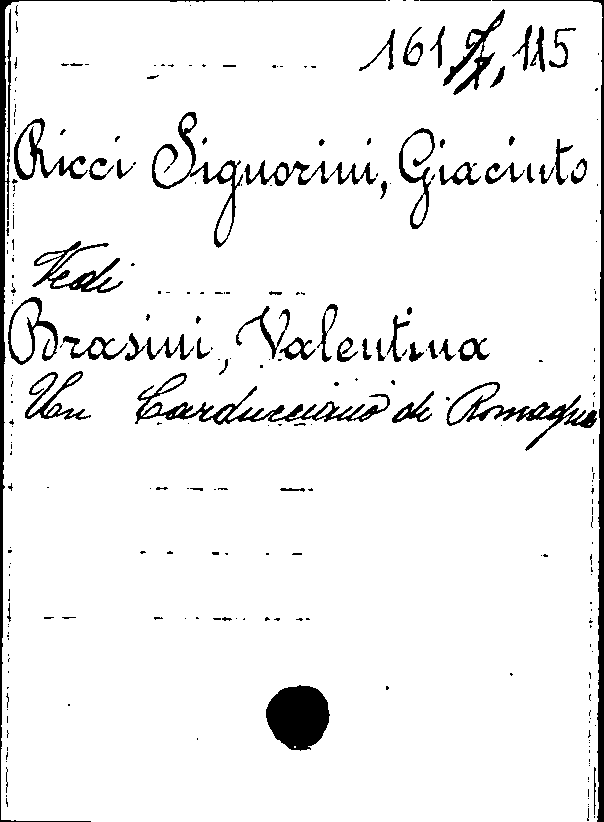 161, 115
Ricci Signorini, Giacinto
Vedi
Brasini, Valentina
Un Carducciano di Romagna